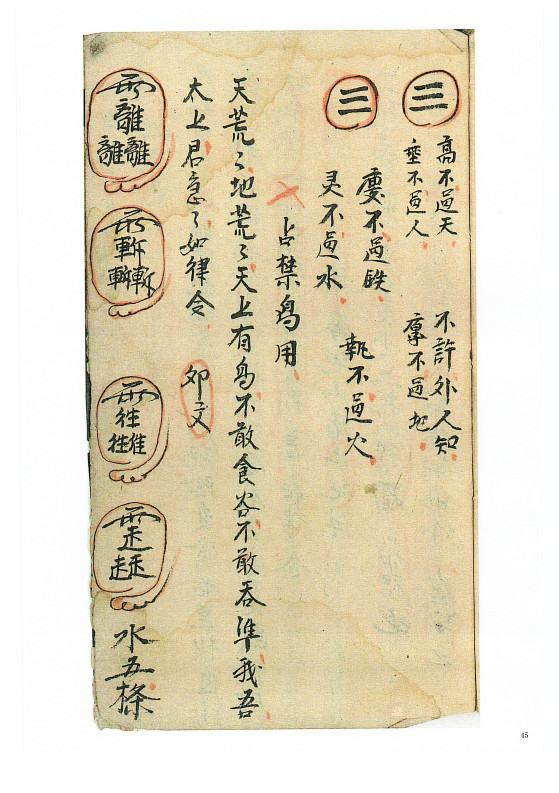 三
高不過天 不許外人知
垂不過人 厚不過地
三
不過鉄 執不過火
灵不過水
占禁鳥用
天荒〻地荒〻天上有鳥不敢食谷不敢吞準我吾
太上君急〻如律令 卯文
雨離離離 雨斬斬斬 水五條
45